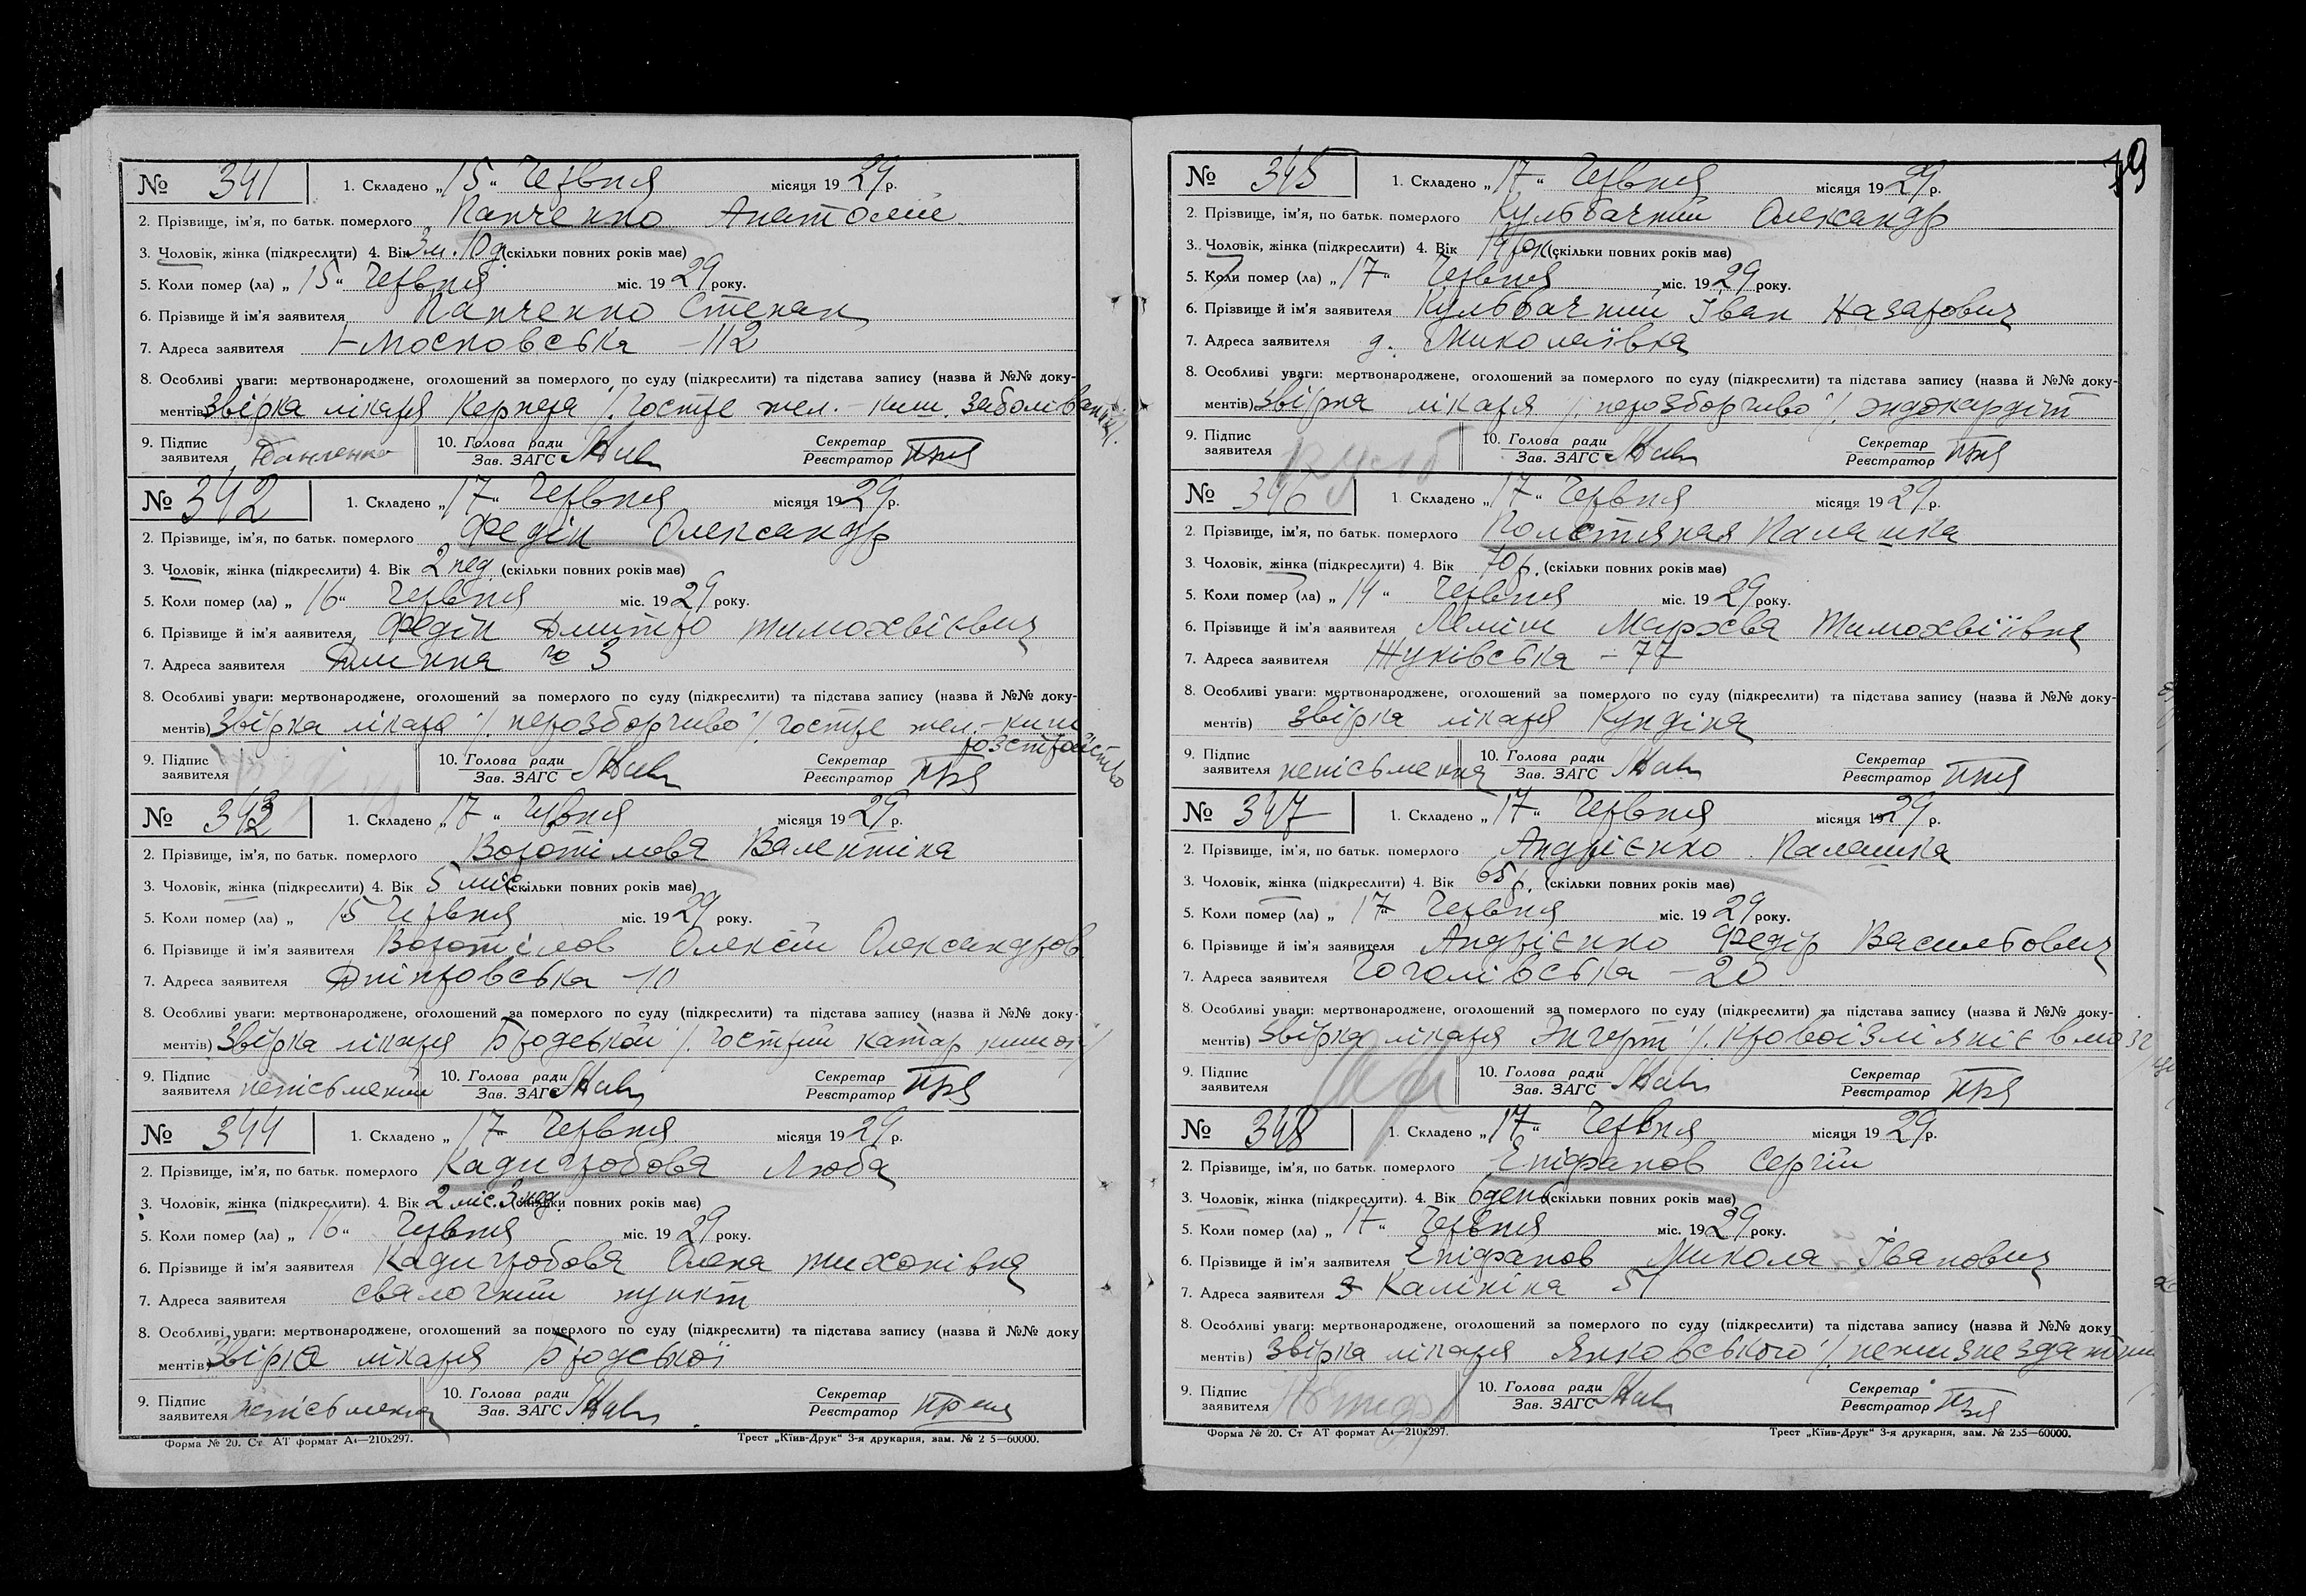 № 341 1. Складено „15“ Червня місяця 1929 р.
2. Прізвище, ім'я, по батьк. померлого Панченко Анатолій
3. Чоловік, жінка (підкреслити) 4. Вік 3 м. 10 д. (скільки повних років має)
5. Коли помер (ла) „15“ Червня міс. 1929 року.
6. Прізвище й ім'я заявителя Панченко Степан
7. Адреса заявителя Московська – 112
8. Особливі уваги: мертвонароджене, оголошений за померлого по суду (підкреслити) та підстава запису (назва й №№ доку-
ментів) Звірка лікаря гостре жел.-киш. заболіваний
9. Підпис заявителя 10. Голова ради Зав. ЗАГС Секретар Реєстратор
№ 342 1. Складено „17“ Червня місяця 1929 р.
2. Прізвище, ім'я, по батьк. померлого Федін Олександр
3. Чоловік, жінка (підкреслити) 4. Вік 2 нед. (скільки повних років має)
5. Коли помер (ла) „16“ Червня міс. 1929 року.
6. Прізвище й ім'я заявителя Федін Дмитро Тимохвієвич
7. Адреса заявителя Длинна № 3
8. Особливі уваги: мертвонароджене, оголошений за померлого по суду (підкреслити) та підстава запису (назва й №№ доку-
ментів) Звірка лікаря /. нерозборчиво /. гостре жел.-киш.
розстройство
9. Підпис заявителя 10. Голова ради Зав. ЗАГС Секретар Реєстратор
№ 343 1. Складено „17“ Червня місяця 1929 р.
2. Прізвище, ім'я, по батьк. померлого Воротілова Валентіна
3. Чоловік, жінка (підкреслити) 4. Вік 5 міс. (скільки повних років має)
5. Коли помер (ла) „ 15 Червня міс. 1929 року.
6. Прізвище й ім'я заявителя Воротілов Олексій Олександров
7. Адреса заявителя Дніпровська – 10
8. Особливі уваги: мертвонароджене, оголошений за померлого по суду (підкреслити) та підстава запису (назва й №№ доку-
ментів) Звірка лікаря Бродської /. гострий катар кишок
9. Підпис заявителя непісьмений 10. Голова ради Зав. ЗАГС Секретар Реєстратор
№ 344 1. Складено „17“ Червня місяця 1929 р.
2. Прізвище, ім'я, по батьк. померлого Кадигробова Люба
3. Чоловік, жінка (підкреслити). 4. Вік 2 міс. 3 нед. (скільки повних років має)
5. Коли помер (ла) „16“ Червня міс. 1929 року.
6. Прізвище й ім'я заявителя Кадигробова Олена Тихонівна
7. Адреса заявителя свалочний пункт
8. Особливі уваги: мертвонароджене, оголошений за померлого по суду (підкреслити) та підстава запису (назва й №№ доку
ментів) Звірка лікаря Бродської
9. Підпис заявителя непісьмена 10. Голова ради Зав. ЗАГС Секретар Реєстратор
Форма № 20. Ст АТ формат А4—210х297. Трест „Київ-Друк“ 3-я друкарня, зам. № 2 5—60000.
№ 345 1. Складено „17“ Червня місяця 1929 р.
2. Прізвище, ім'я, по батьк. померлого Кульбачний Олександр
3. Чоловік, жінка (підкреслити) 4. Вік 14 рок (скільки повних років має)
5. Коли помер (ла) „17“ Червня міс. 1929 року.
6. Прізвище й ім'я заявителя Кульбачний Іван Назарович
7. Адреса заявителя д. Миколаївка
8. Особливі уваги: мертвонароджене, оголошений за померлого по суду (підкреслити) та підстава запису (назва й №№ доку-
ментів) Звірка лікаря /. нерозборчиво /. эндокардіт
9. Підпис заявителя Кульб 10. Голова ради Зав. ЗАГС Секретар Реєстратор
№ 346 1. Складено „17“ Червня місяця 1929 р.
2. Прізвище, ім'я, по батьк. померлого Полстяная Палашка
3. Чоловік, жінка (підкреслити) 4. Вік 70 р. (скільки повних років має)
5. Коли помер (ла) „14“ Червня міс. 1929 року.
6. Прізвище й ім'я заявителя Леміш Мархва Тимохвіївна
7. Адреса заявителя Жуківська – 77
8. Особливі уваги: мертвонароджене, оголошений за померлого по суду (підкреслити) та підстава запису (назва й №№ доку-
ментів) звірка лікаря Кундіна
9. Підпис заявителя непісьменна 10. Голова ради Зав. ЗАГС Секретар Реєстратор
№ 347 1. Складено „17“ Червня місяця 1929 р.
2. Прізвище, ім'я, по батьк. померлого Андрієнко Палашка
3. Чоловік, жінка (підкреслити) 4. Вік 65 р. (скільки повних років має)
5. Коли помер (ла) „17“ Червня міс. 1929 року.
6. Прізвище й ім'я заявителя Андрієнко Федір Васильович
7. Адреса заявителя Гоголівська – 20
8. Особливі уваги: мертвонароджене, оголошений за померлого по суду (підкреслити) та підстава запису (назва й №№ доку-
ментів) Звірка лікаря Энгерт /. кровоізліяніє в мозг
9. Підпис заявителя 10. Голова ради Зав. ЗАГС Секретар Реєстратор
№ 348 1. Складено „17“ Червня місяця 1929 р.
2. Прізвище, ім'я, по батьк. померлого Епіфанов Сергій
3. Чоловік, жінка (підкреслити). 4. Вік 6 день (скільки повних років має)
5. Коли помер (ла) „17“ Червня міс. 1929 року.
6. Прізвище й ім'я заявителя Епіфанов Микола Іванович
7. Адреса заявителя Калініна 51
8. Особливі уваги: мертвонароджене, оголошений за померлого по суду (підкреслити) та підстава запису (назва й №№ доку
ментів) Звірка лікаря Янковського /. нежизнездатний
9. Підпис заявителя 10. Голова ради Зав. ЗАГС Секретар Реєстратор
Форма № 20. Ст АТ формат А4—210х297. Трест „Київ-Друк“ 3-я друкарня, зам. № 235—60000.